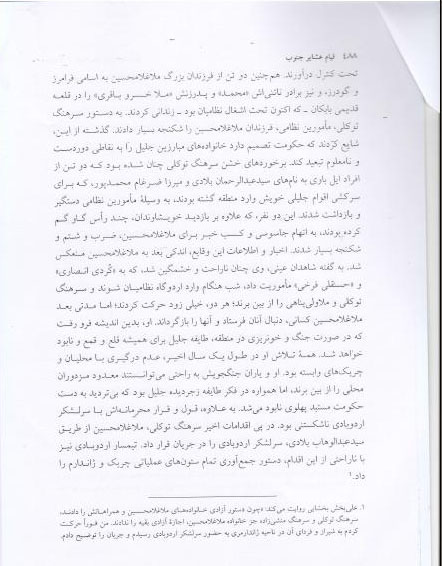 ۴۸۸ قیام عشایر جنوب
تحت کنترل درآورند. هم‌چنین دو تن از فرزندان بزرگ ملاغلامحسین به اسامی فرامرز
و گودرز، و نیز برادر ناتنی‌اش «محمد» و پدرزنش «ملا خسرو باقری» را در قلعه
قدیمی بابکان ـ که اکنون تحت اشغال نظامیان بود ـ زندانی کردند. به دستور سرهنگ
توکلی، مأمورین نظامی، فرزندان ملاغلامحسین را شکنجه بسیار دادند. گذشته از این،
شایع کردند که حکومت تصمیم دارد خانواده‌های مبارزین جلیل را به نقاطی دوردست
و نامعلوم تبعید کند. برخوردهای خشن سرهنگ توکلی چنان شده بود که دو تن از
افراد ایل باوی به نام‌های سیدعبدالرحمان بلادی و میرزا ضرغام محمدپور، که برای
سرکشی اقوام جلیلی خویش وارد منطقه گشته بودند، به وسیلهٔ مأمورین نظامی دستگیر
و بازداشت شدند. این دو نفر، که علاوه بر بازدید خویشاوندان، چند رأس گاو گم
کرده بودند، به اتهام جاسوسی و کسب خبر برای ملاغلامحسین، ضرب و شتم و
شکنجه بسیار شدند. اخبار و اطلاعات این وقایع، اندکی بعد به ملاغلامحسین منعکس
شد. به گفته شاهدان عینی، وی چنان ناراحت و خشمگین شد، که به «کُردی انصاری»
و «حسنقلی فرخی» مأموریت داد، شب هنگام وارد اردوگاه نظامیان شوند و سرهنگ
توکلی و ملاولی‌پناهی را از بین برند؛ هر دو، خیلی زود حرکت کردند؛ اما مدتی بعد
ملاغلامحسین کسانی، دنبال آنان فرستاد و آنها را بازگرداند. او، بدین اندیشه فرو رفت
که در صورت جنگ و خونریزی در منطقه، طایفه جلیل برای همیشه قلع و قمع و نابود
خواهد شد. همهٔ تلاش او در طول یک سال اخیر، عدم درگیری با محلیان و
چریک‌های وابسته بود. او و یاران جنگجویش به راحتی می‌توانستند معدود مزدوران
محلی را از بین برند، اما همواره در فکر طایفه زجردیده جلیل بود که بی‌تردید به دست
حکومت مستبد پهلوی نابود می‌شد. به علاوه، قول و قرار محرمانه‌اش با سرلشکر
اردوبادی ناشکستنی بود. در پی اقدامات اخیر سرهنگ توکلی، ملاغلامحسین از طریق
سیدعبدالوهاب بلادی، سرلشکر اردوبادی را در جریان قرار داد. تیمسار اردوبادی نیز
با ناراحتی از این اقدام، دستور جمع‌آوری تمام ستون‌های عملیاتی چریک و ژاندارم را
داد.۱
۱. علی‌بخش بخشایی روایت می‌کند: «چون دستور آزادی خانواده‌های ملاغلامحسین و همراهانش را دادند،
سرهنگ توکلی و سرهنگ منشی‌زاده جز خانواده ملاغلامحسین، اجازهٔ آزادی بقیه را ندادند. من فوراً حرکت
کردم به شیراز و فردای آن در ناحیه ژاندارمری به حضور سرلشکر اردوبادی رسیدم و جریان را توضیح دادم.